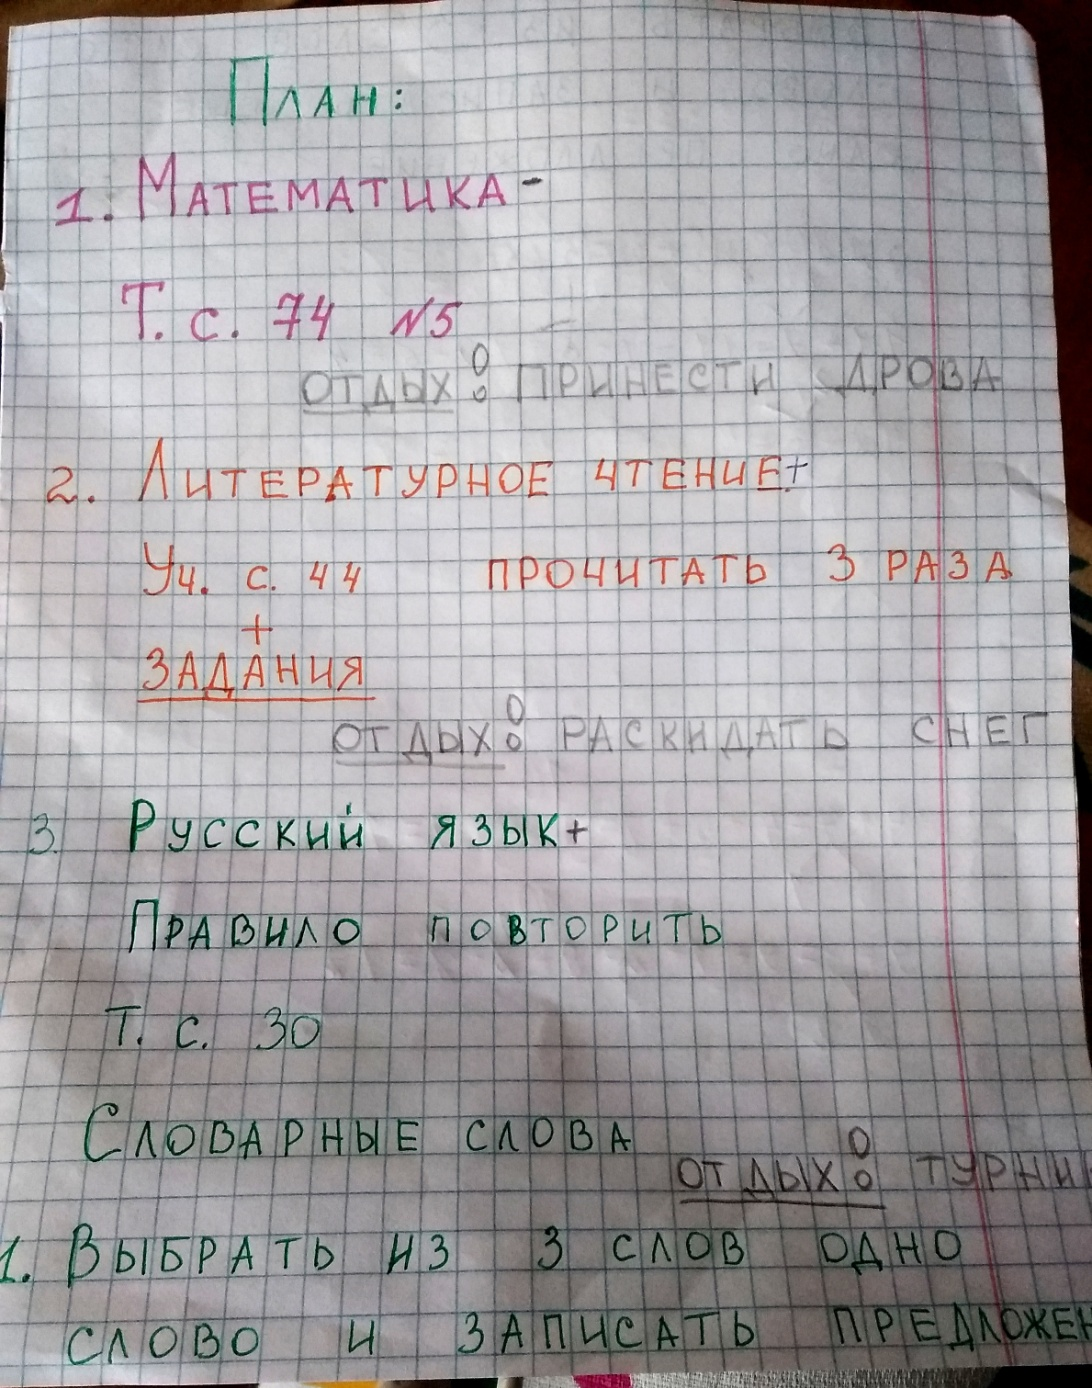 План:
1. Математика-
Т. с. 74 №5
отдых! принести дрова
2. Литературное чтение+
Уч. с. 44 прочитать 3 раза
+
задания
отдых! раскидать снег
3. Русский язык+
Правило повторить
Т. с. 30
Словарные слова
отдых! турни
1. Выбрать из 3 слов одно
слово и записать предложен